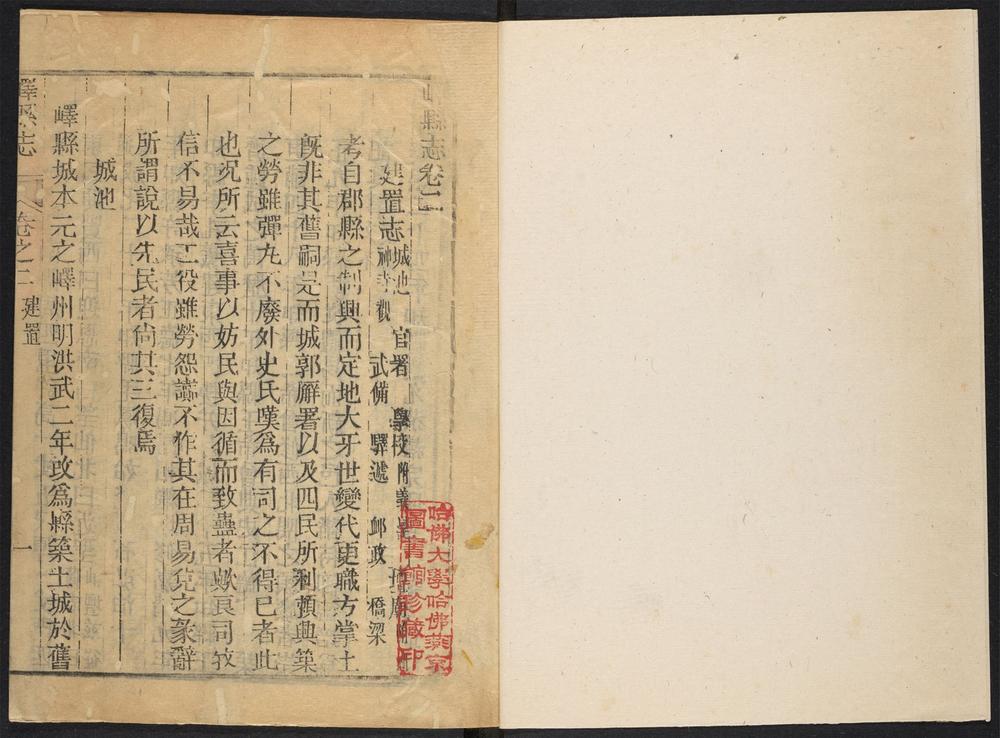 嶧縣志卷二
建置志 城池 官署 學校附義學 壇廟
神寺觀 武備 驛遞 郵政 橋梁
考自郡縣之制興而定地大牙世變代更職方掌土
旣非其舊嗣是而城郭廨署以及四民所利賴興築
之勞雖彈丸不廢外史氏嘆爲有司之不得已者此
也況所云喜事以妨民與因循而致蠱者歟良司牧
信不易哉工役雖勞怨讟不作其在周易兌之彖辭
所謂說以先民者尙其三復焉
城池
嶧縣城本元之嶧州明洪武二年改爲縣築土城於舊
嶧縣志 卷之二 建置 一
哈佛大學哈佛燕京
圖書館珍藏印